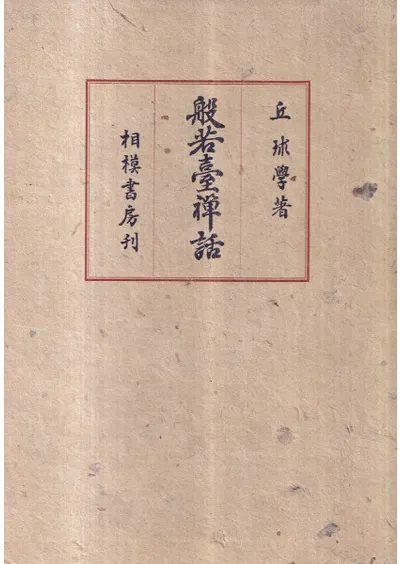 丘球學著
般若臺禅話
相模書房刊